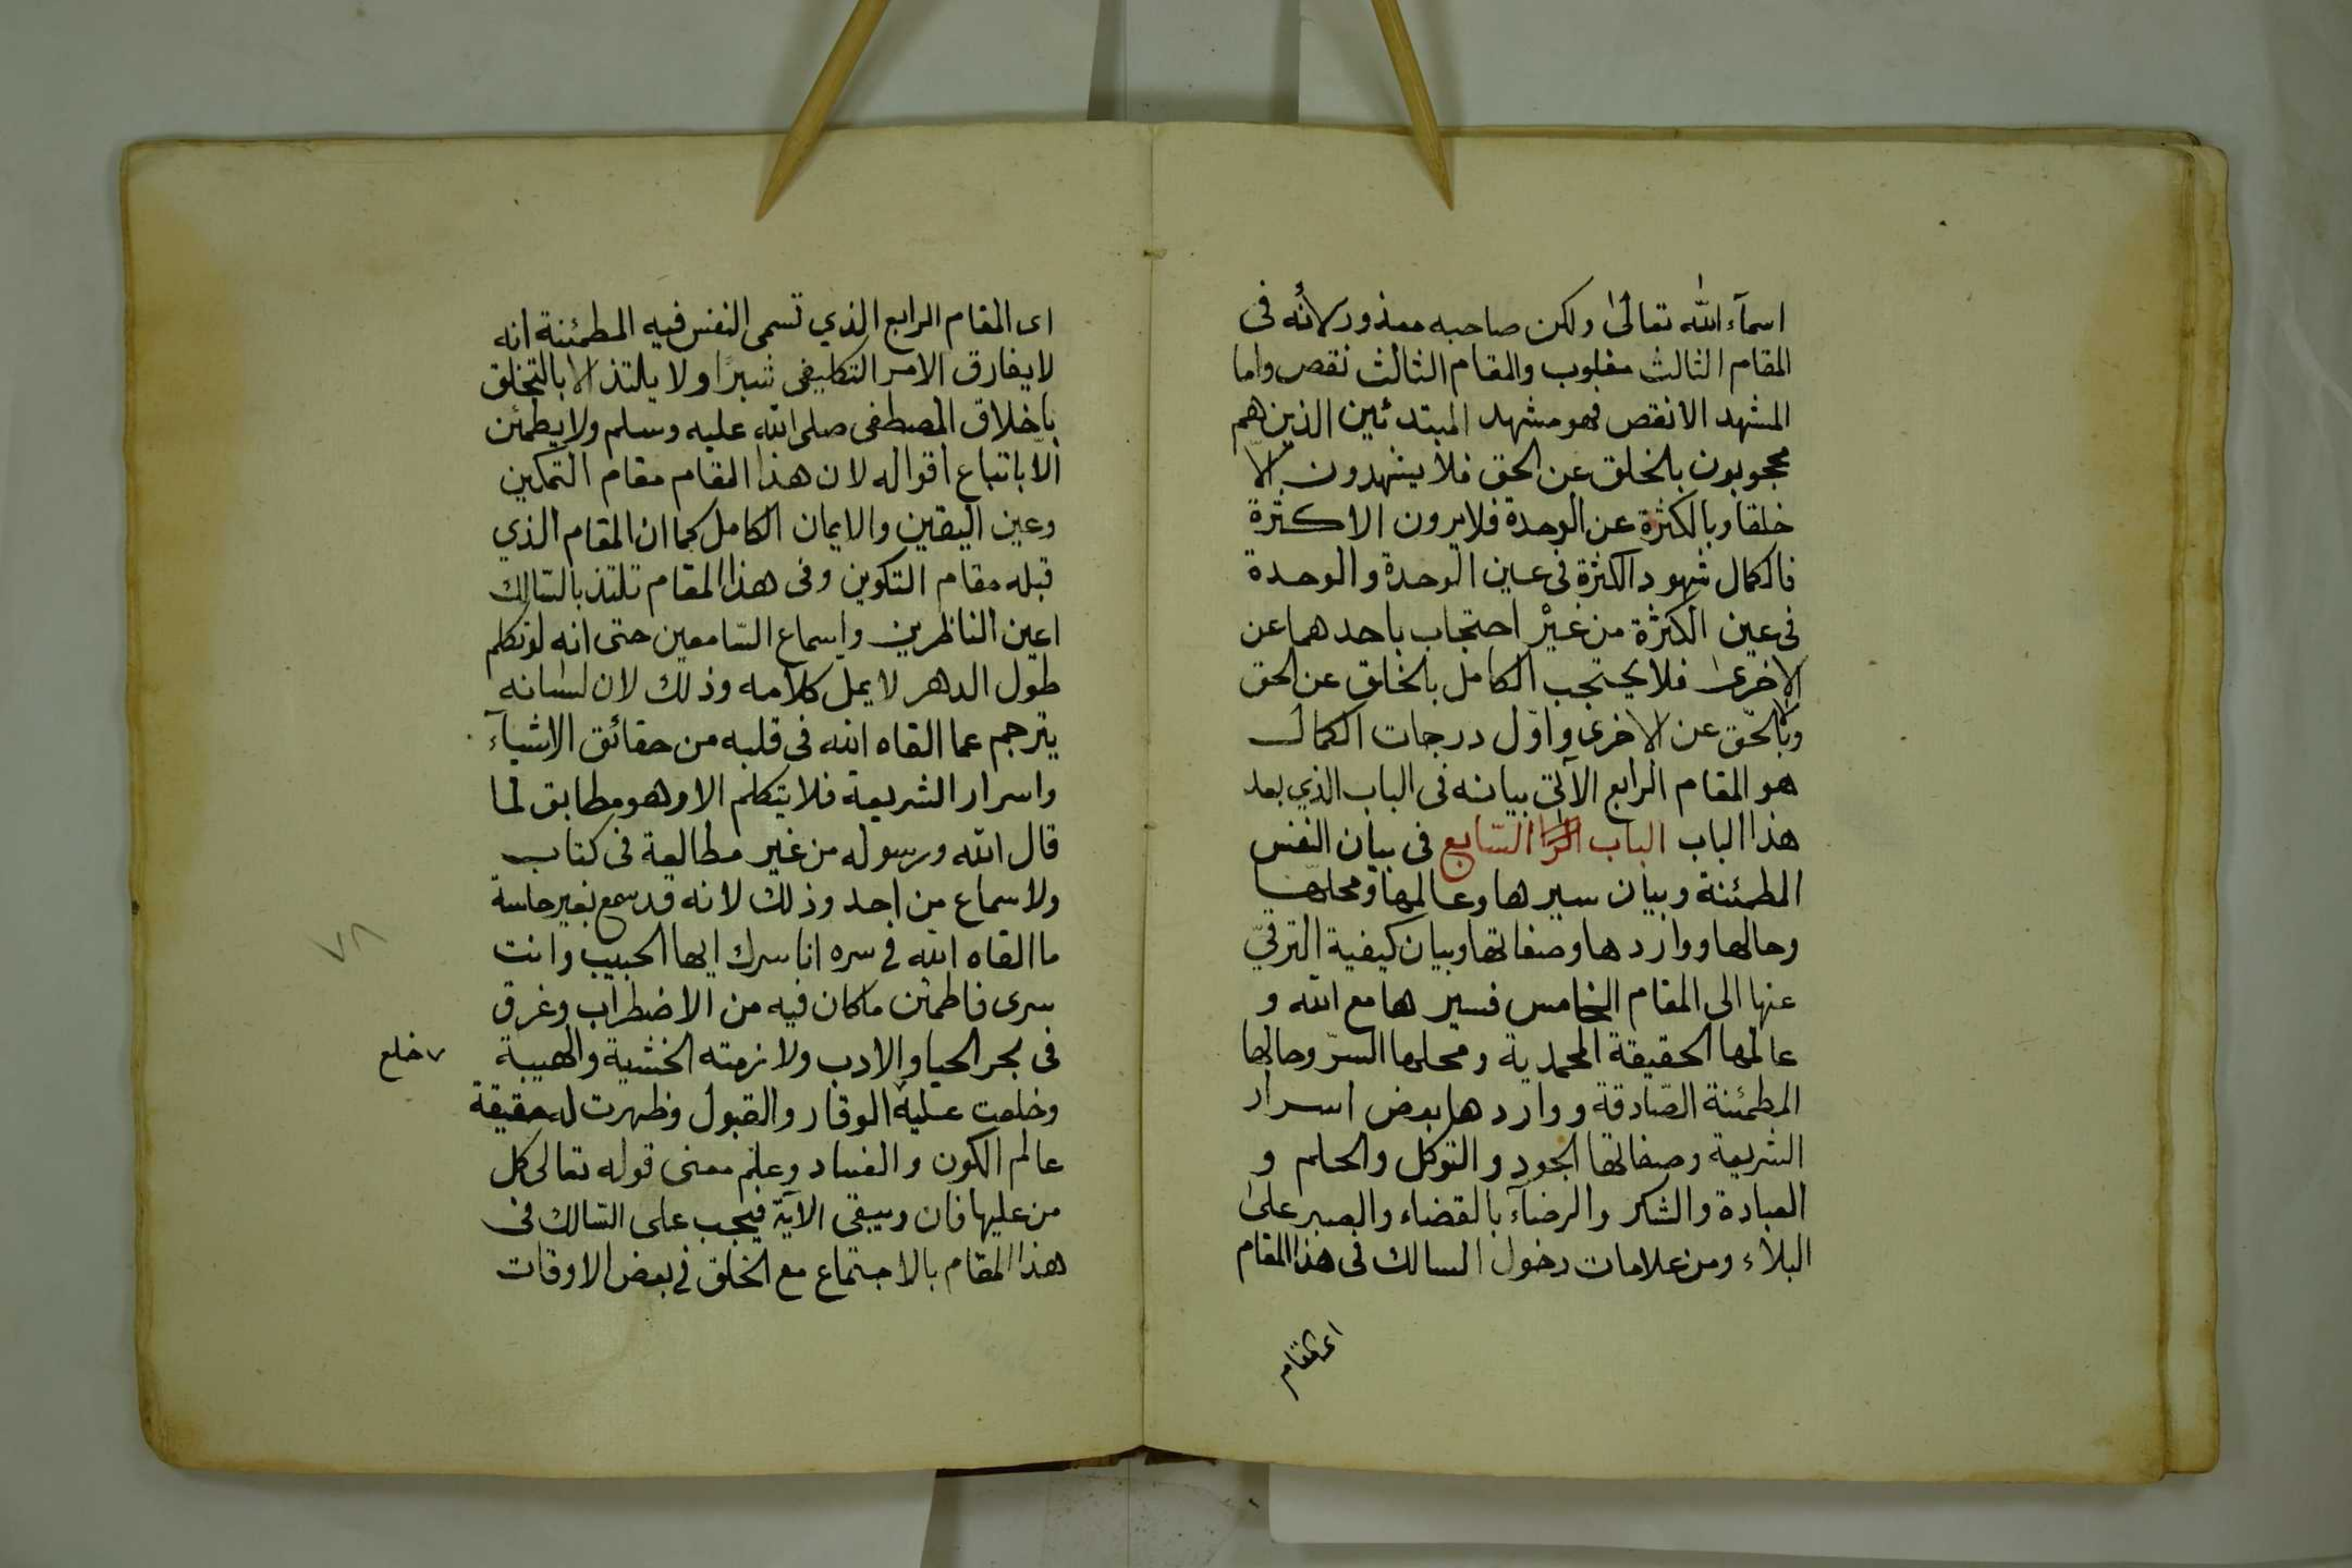 اسمآء الله تعالى ولكن صاحبه معذور لانه فى
المقام الثالث مغلوب والمقام الثالث نقص واما
المشهد الانقص فهو مشهد المبتدئين الذين هم
محجوبون بالخلق عن الحق فلا يشهدون الا
خلقا وبالكثرة عن الوحدة فلا يرون الا كثرة
فالكمال شهود الكثرة فى عين الوحدة والوحدة
فى عين الكثرة من غير احتجاب باحدهما عن
الاخرى فلا يحتجب الكامل بالخلق عن الحق
وبالحق عن الاخرى واول درجات الكمال
هو المقام الرابع الآتى بيانه فى الباب الذي بعد
هذا الباب الباب الرا السّابع فى بيان النفس
المطمئنة وبيان سيرها وعالمها ومحلها
وحالها وواردها وصفاتها وبيان كيفية الترقيّ
عنها الى المقام الخامس فسيرها مع الله و
عالمها الحقيقة المحمدية ومحلها السرّ وحالها
المطمئنة الصّادقة وواردها بعض اسرار
الشريعة وصفاتها الجود والتوكل والحلم و
العبادة والشكر والرضآء بالقضاء والصبر على
البلاء ومن علامات دخول السالك فى هذا المقام
اى المقام
اى المقام الرابع الذي تسمى النفس فيه المطمئنة انه
لا يفارق الامر التكليفى شبرًا ولا يلتذ الا بالتخلق
باخلاق المصطفى صلى الله عليه وسلم ولا يطمئن
الّا باتباع اقواله لان هذا المقام مقام التمكين
وعين اليقين والايمان الكامل كما ان المقام الذي
قبله مقام التكوين وفى هذا المقام تلتذ بالسّالك
اعين الناظرين واسماع السّامعين حتى انه لو تكلم
طول الدهر لا يمل كلامه وذلك لان لسانه
يترجم عما القاه الله فى قلبه من حقائق الاشيآء
واسرار الشريعة فلا يتكلم الا وهو مطابق لما
قال الله ورسوله من غير مطالعة فى كتاب
ولا سماع من احد وذلك لانه قد سمع بغير حاسة
ما القاه الله في سره انا سرك ايها الحبيب وانت
سرى فاطمئن ما كان فيه من الاضطراب وغرق
فى بحر الحيا والادب ولازمته الخشية والهيبة
وخلعت عليه الوقار والقبول وظهرت له حقيقة
عالم الكون والفساد وعلم معنى قوله تعالى كل
من عليها فان ويبقى الآية فيجب على السّالك فى
هذا المقام بالاجتماع مع الخلق في بعض الاوقات
خلع
٧٨